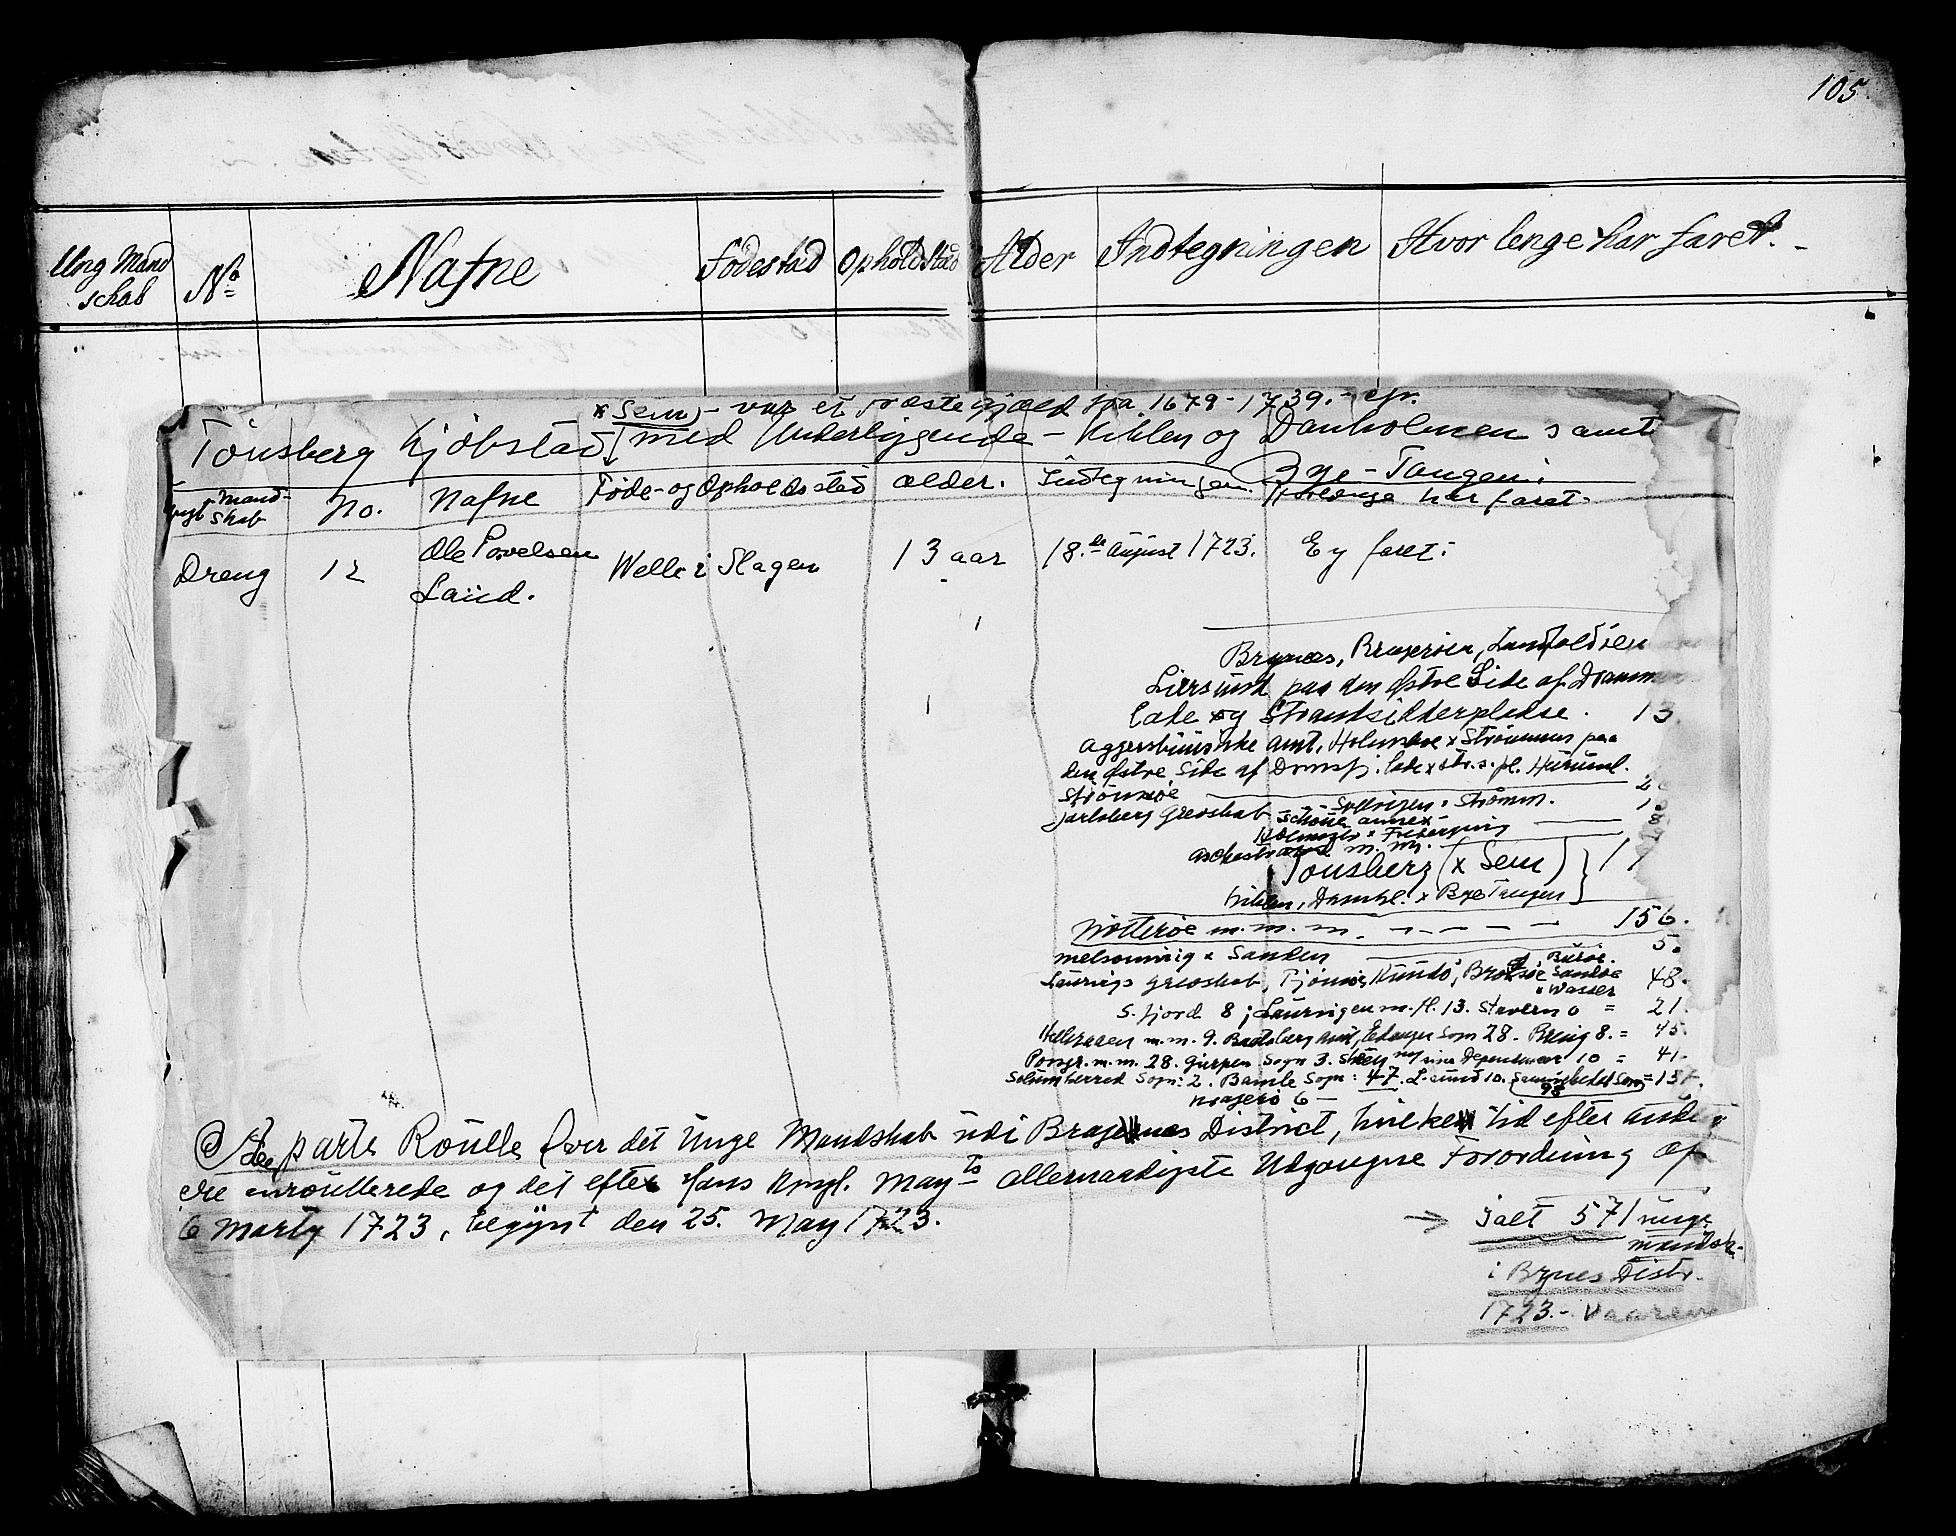 105.
Ung Mand
schab
No
Nafne
Födestad
Opholdstad
Alder
Indtegningen
Hvor lenge har faret. -
* Sem - var et præstegjæld fra 1679 - 1739. - cfr.
Tönsberg Kjöbstad med Underliggende - Kihlen og Danholmen samt
Bye - Tangen.
Mand-
skab
No.
Nafne
Föde- og Opholdsstad
ælder.
Indtegningen.
Hvorlenge har faret.
Dreng
12
Ole Povelsen
Laúd.
Welle i Slagen
13 aar
18.de August 1723.
Ey faret.
Brgnæs, Bragerøen, Landfaldøen
Liersund paa den østre Side af Dramm
Lade og Strandsidderpladse. 13
Aggershúúsiske Amt, Holmsboe x Strömmen paa
den Østre Side af Dramsfj. lade x str.s.pl. Húrúml.
Strömsöe
Jarlsberg Grevskab Sollvigen x Strömm.
Holmegb x
m. m.
Tonsberg (x Sem)
Kihlen, Damhl. x Bye Tangen
Nötteröe m. m. m. - - - - - 156.
Melsomvig x Sanden 5.
Laúrvigs Grevskab, Tjömöe, Húúdö, Sandöe 48.
S. fjord 8; Laúrvigen m. fl. 13. Stavern 0 = 21.
Hellsraaen m. m. 9. Bratsberg Amt, Edanger Sogn 28. Brevig 8. = 45.
Porsgr. m. m. 28. Gierpen Sogn 3. 10 = 41.
Solumherred Sogn: 2. Bamle Sogn: 47. L-súnd 10.
6 -
Separte Roúlle over det Unge Mandskab údi Bragernæs District, hvilke tid efter anden
ere enroúllerede og det efter Hans Kongl. Mayts allernaadigste Udgangne Forordning af
6 Marty 1723, begÿnt den 25. May 1723.
→ Ialt 571 unge
mandsk.
i Brgnes Distr.
1723. - Vaaren